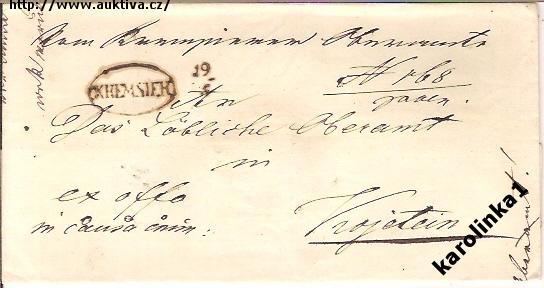 http://www.auktiva.cz/
Vom Kremsierer Oberamte
KREMSIER
19
N 168
An
Das Löbliche Oberamt
in
ex offo
in causa
Kojetein
karolinka1